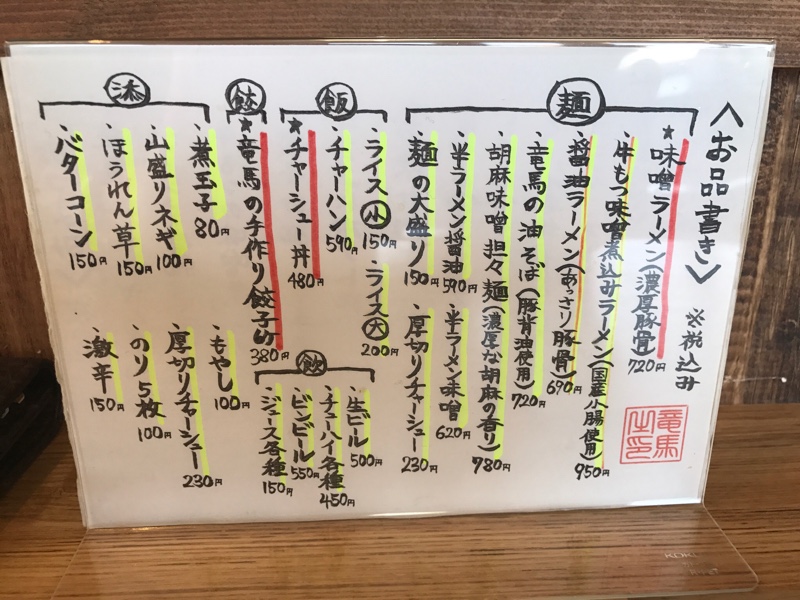 〈お品書き〉
※税込み
麺
★味噌ラーメン(濃厚豚骨)720円
・牛もつ味噌煮込みラーメン(国産小腸使用)950円
・醤油ラーメン(あっさり豚骨)690円
・竜馬の油そば(豚背油使用)720円
・胡麻味噌担々麺(濃厚な胡麻の香り)780円
・半ラーメン醤油590円
・半ラーメン味噌620円
・麺の大盛り150円
・厚切りチャーシュー230円
飯
・ライス小150円
・ライス大200円
・チャーハン590円
★チャーシュー丼480円
餃
★竜馬の手作り餃子 380円
飲
・生ビール500円
・チューハイ各種450円
・ビンビール550円
・ジュース各種150円
添
・煮玉子80円
・山盛りネギ100円
・ほうれん草150円
・バターコーン150円
・もやし100円
・厚切りチャーシュー230円
・のり5枚100円
・激辛150円
竜馬之印